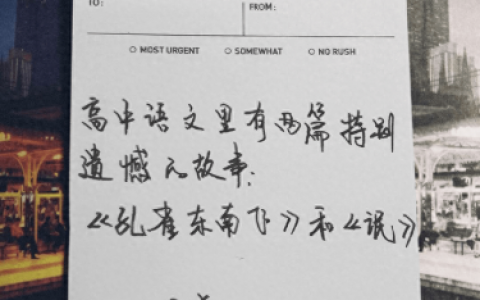 TO:
FROM:
MOST URGENT SOMEWHAT NO RUSH
高中语文里有两篇特别
遗憾的故事:
《孔雀东南飞》和《氓》